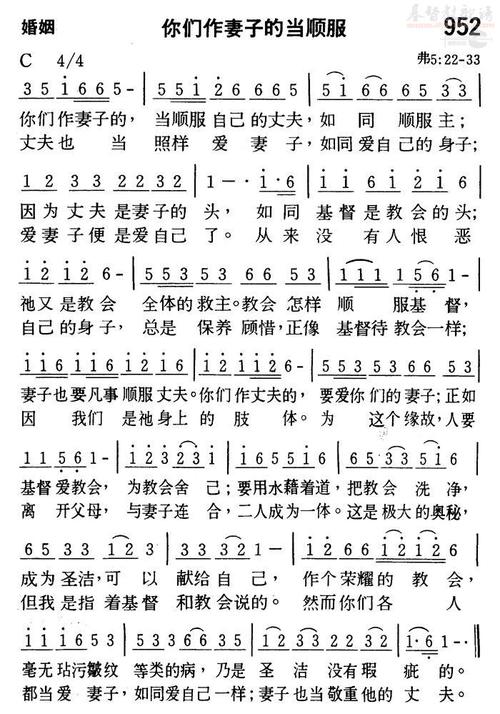 基督教歌谱
婚姻
你们作妻子的当顺服
952
C 4/4
弗5:22-33
3 5 i 6 6 5 - | 5 5 i 2 6 6 5 | 5 i 6 6 5 3 3 |
你们作妻子的，当顺服自己的丈夫，如同顺服主；
丈夫也当照样爱妻子，如同爱自己的身子；
1 2 3 3 2 2 3 2 | 1 - · i · 6 | i i 6 i 2 i 6 |
因为丈夫是妻子的头，如同基督是教会的头；
爱妻子便是爱自己了。从来没有人恨恶
i 2 i 2 6 - | 5 5 3 5 5 3 5 3 | i i i 1 5 6 1 - |
祂又是教会全体的救主。教会怎样顺服基督，
自己的身子，总是保养顾惜，正像基督待教会一样；
i i 6 i i 6 i 2 i 6 | i 2 i 2 6 - | 5 5 3 5 3 6 6 5 6 |
妻子也要凡事顺服丈夫。你们作丈夫的，要爱你们的妻子；正如
因我们是祂身上的肢体。为这个缘故，人要
1 1 5 6 1 - | i 2 3 2 3 i | i 6 5 5 i 6 | 6 5 3 3 5 i 6 |
基督爱教会，为教会舍己；要用水藉着道，把教会洗净，
离开父母，与妻子连合，二人成为一体。这是极大的奥秘，
成为圣洁，可以献给自己，作个荣耀的教会，
但我是指着基督和教会说的。然而你们各人
毫无玷污皱纹等类的病，乃是圣洁没有瑕疵的。
都当爱妻子，如同爱自己一样；妻子也当敬重他的丈夫。